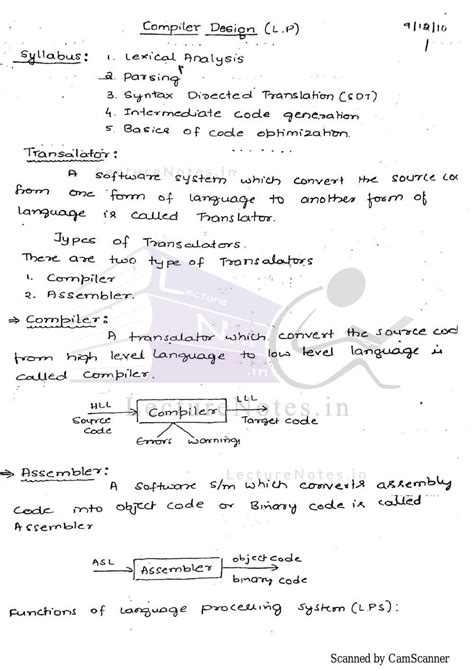 Compiler Design (L.P)
9/12/10
1
Syllabus: 1. Lexical Analysis
2. Parsing
3. Syntax Directed Translation (SDT)
4. Intermediate code generation
5. Basics of code optimization.
Transalator:
LectureNotes.in
A software system which convert the source cod
from one form of language to another form of
language is called Translator.
Types of Transalators.
There are two type of Transalators
1. Compiler
2. Assembler.
Lecture
N
.in
⇒ Compiler:
A transalator which convert the source cod
from high level language to low level language is
called compiler.
HLL
Source
Code
Compiler
LLL
Target code
LectureNotes.in
Errors warnings
LectureNotes.in
⇒ Assembler:
A software s/m which converts assembly
code into object code or Binary code is called
Assembler
ASL
Assembler
object code
binary code
Functions of language processing system (LPS):
Scanned by CamScanner